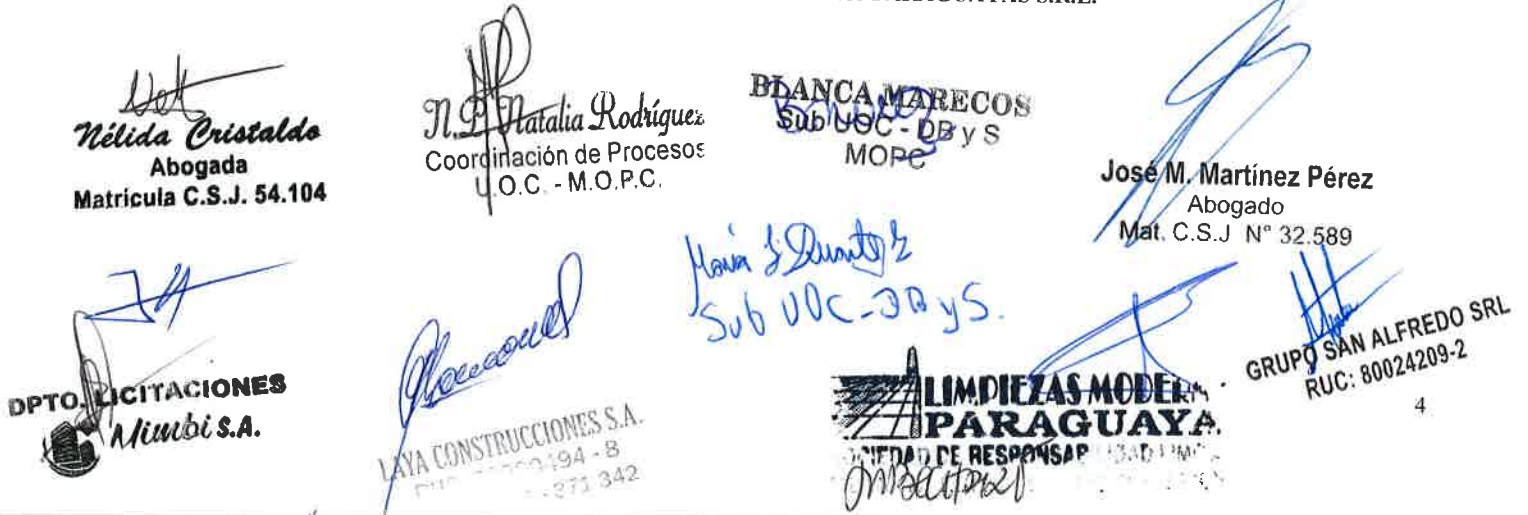 S.R.L.
Nélida Cristaldo
Abogada
Matrícula C.S.J. 54.104
N.P. Natalia Rodríguez
Coordinación de Procesos
U.O.C. - M.O.P.C.
BLANCA MARECOS
Sub UOC - DB y S
MOPC
José M. Martínez Pérez
Abogado
Mat. C.S.J N° 32.589
Sub UOC - DB y S.
DPTO. LICITACIONES
Mimbi S.A.
LAYA CONSTRUCCIONES S.A.
LIMPIEZAS MODER
PARAGUAYA
SOCIEDAD DE RESPONSAB
GRUPO SAN ALFREDO SRL
RUC: 80024209-2
4